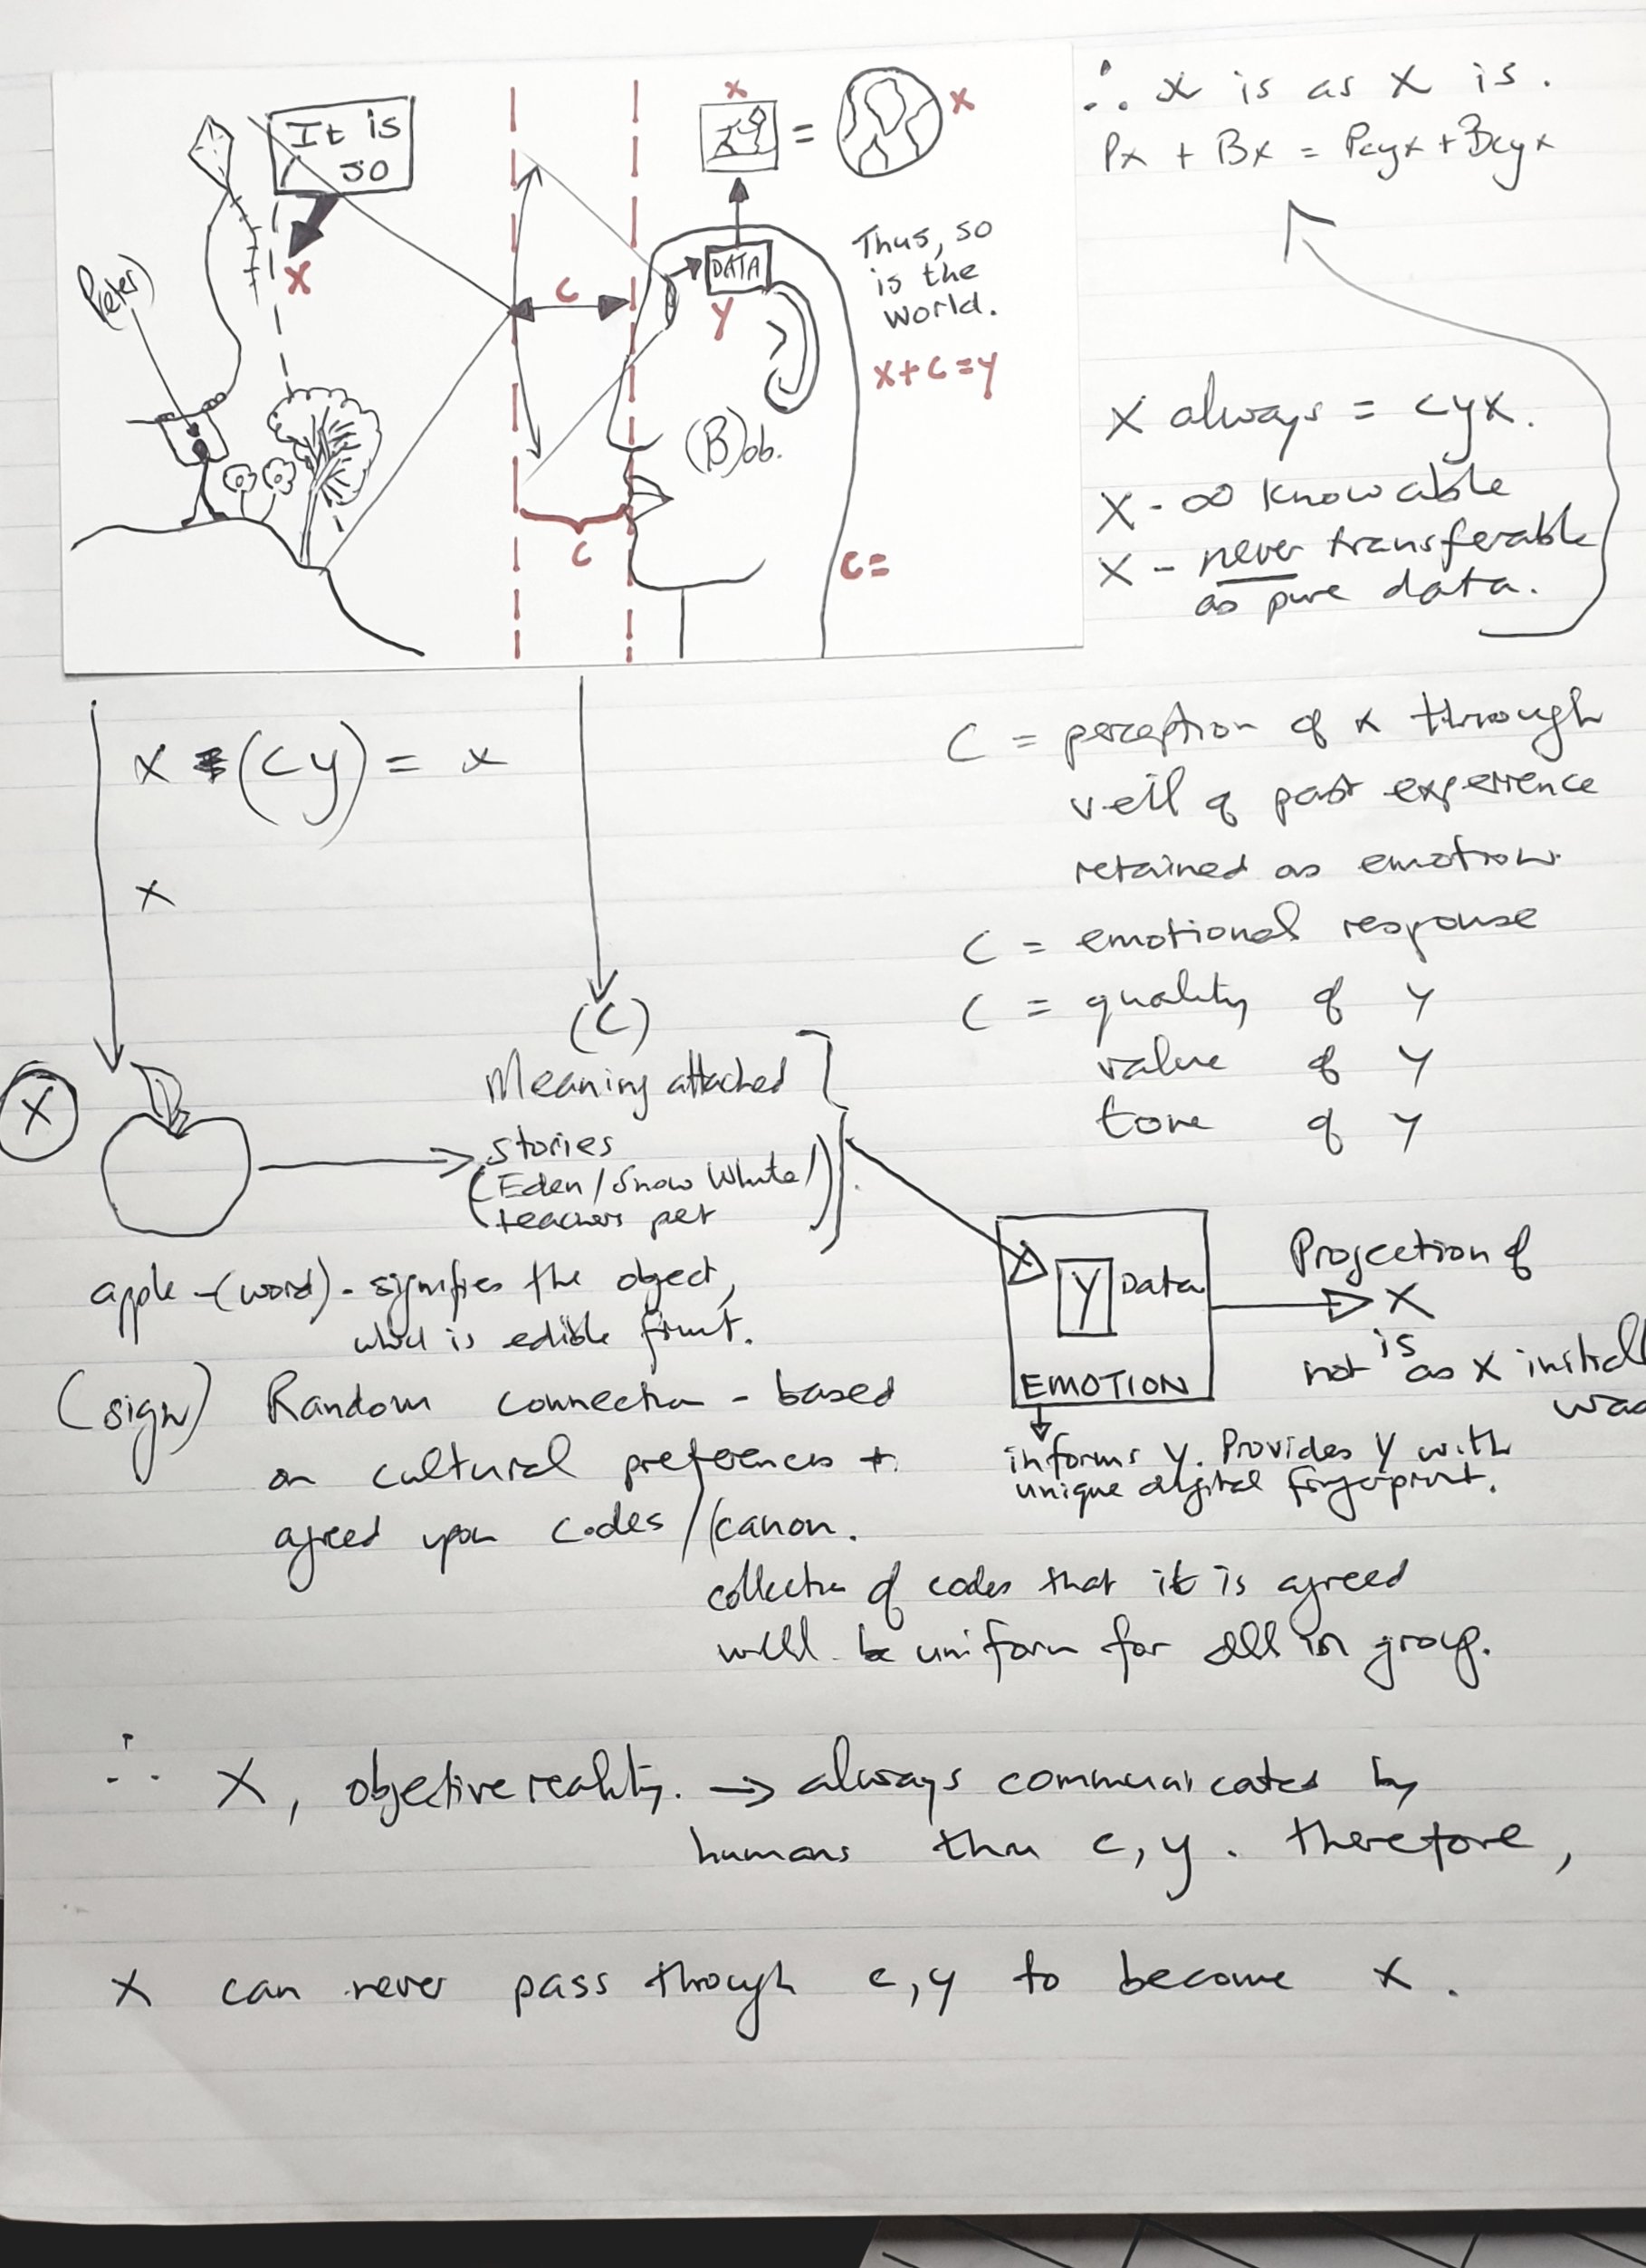 It is
so
X
P(eter)
C
C
x
=
x
DATA
Y
Thus, so
is the
world.
x+c=y
(B)ob.
C=
∴ x is as x is.
Px + Bx = Pcyx + Bcyx
X always = cyx.
X - ∞ knowable
X - never transferable
as pure data.
X (cy) = x
x
C = perception of x through
veil of past experience
retained as emotion.
C = emotional response
C = quality of y
value of y
tone of y
X
(C)
Meaning attached
stories
(Eden/Snow White/)
(teachers pet
apple - (word) - signifies the object,
which is edible fruit.
Y Data
EMOTION
Projection of
X
is
not as x initiall
was
informs y. Provides y with
unique digital fingerprint.
(sign) Random connection - based
on cultural preferences +
agreed upon codes / (canon.
collection of codes that it is agreed
will be uniform for all in group.
∴ X, objective reality. → always communicated by
humans thru c, y. therefore,
x can never pass through c, y to become x.